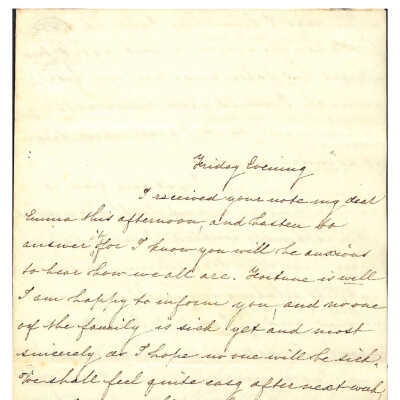 Friday Evening
I received your note my dear
Emma this afternoon, and hasten to
answer it for I know you will be anxious
to hear how we all are. Fortune is well
I am happy to inform you, and no one
of the family is sick yet and most
sincerely do I hope no one will be sick.
We shall feel quite easy after next week,